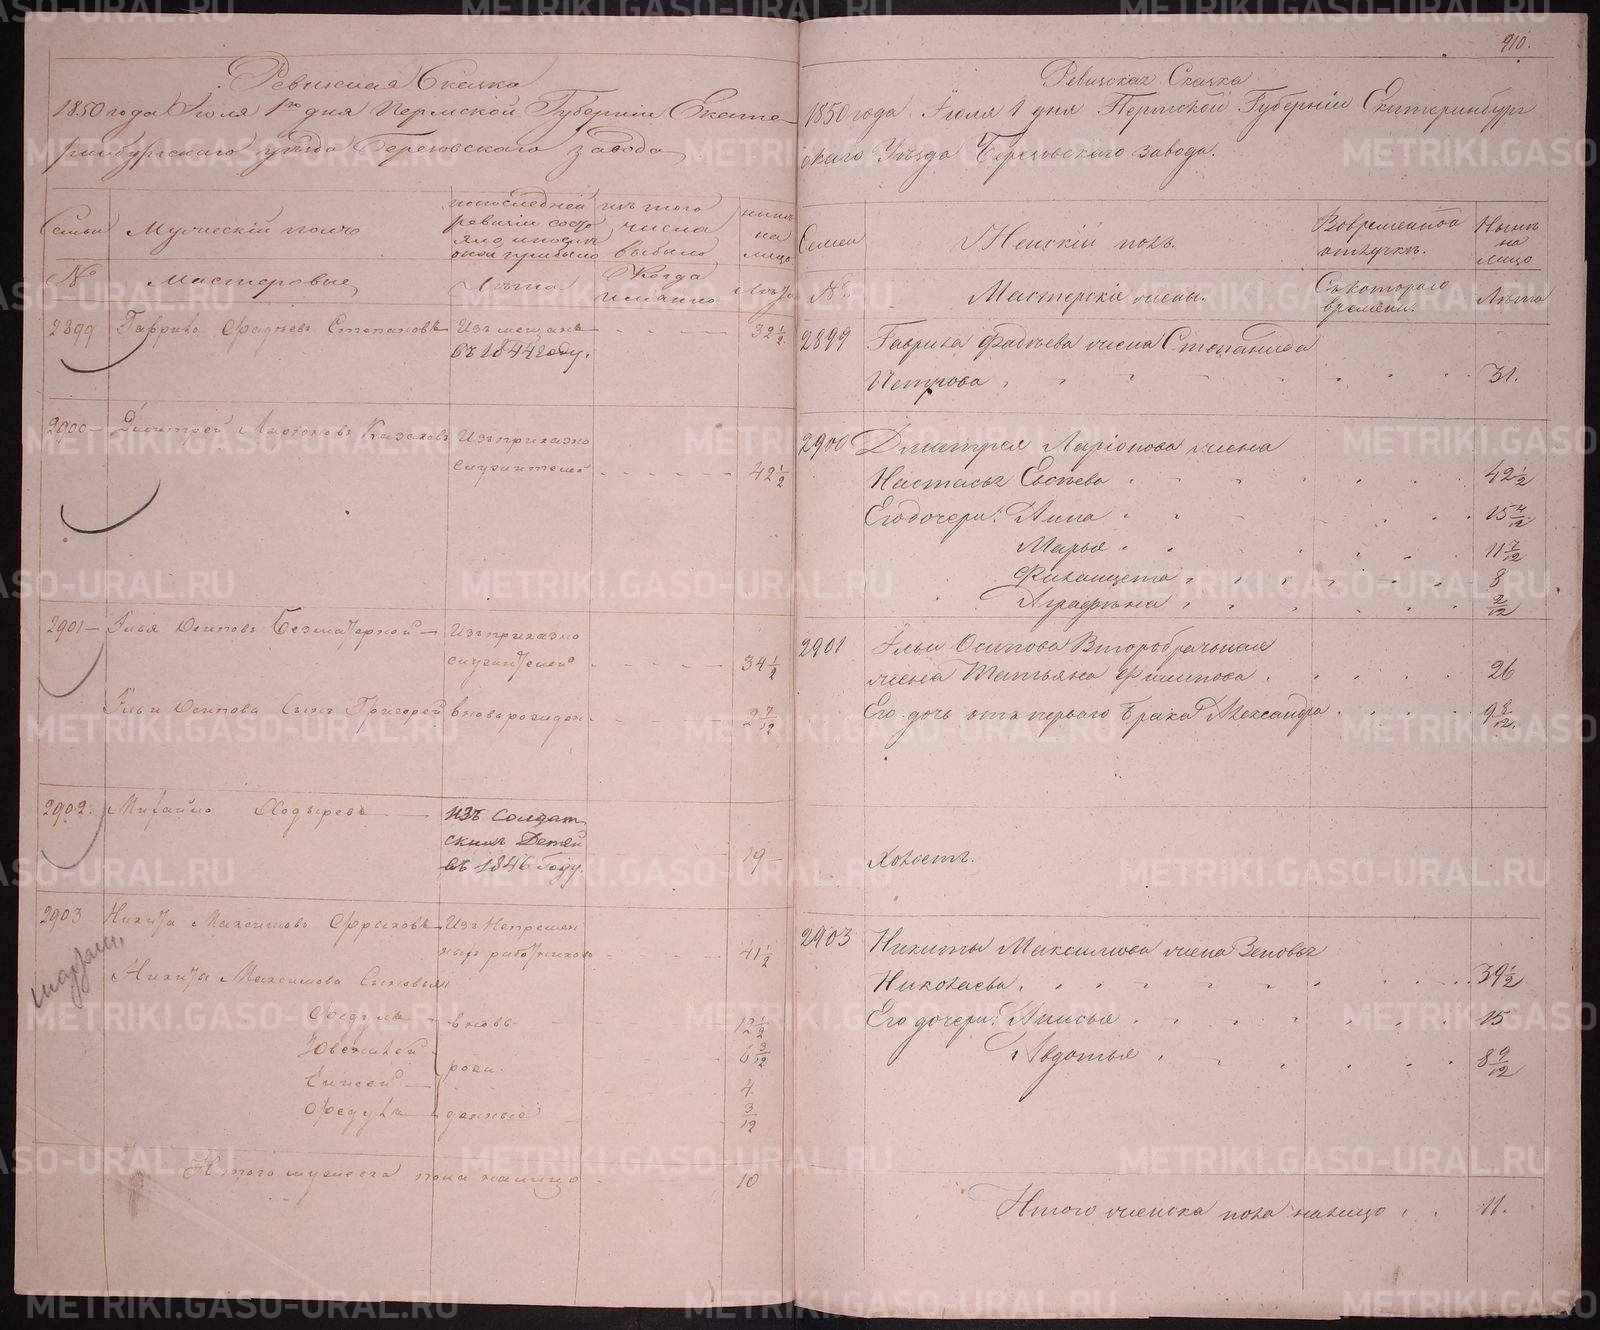 910.
Ревизская Сказка
1850 года Июля 1го дня Пермской Губернiи Екате-
ринбургскаго уѣзда Березовскаго завода
Семьи
Мужескiй полъ
по последней ревизiи состояло, и после оной прибыло
изъ того числа выбыло
нынѣ на лицо
№
Мастеровые
Лѣта
Когда именно
Лѣта
2899 Гаврило Фадѣевъ Степановъ Изъ мещанъ 32 ½
въ 1844 году.
2900 Дмитрей Ларiоновъ Казаковъ Изъ приказно
служителей 42 ½
2901 Илья Осиповъ Безматерной Изъ приказно
служителей 34 ½
Ильи Осипова Сынъ Григорей вновь рожден. 2 7/12
2902. Михайло Ходыревъ изъ солдат
скихъ Детей
въ 1846 Году. 19
2903 Никита Максимовъ Изъ Непремен
ныхъ работниковъ 41 ½
Никиты Максимова Сыновья
вновь 12 ½
рож. 6 3/12
Елисей 4
денные 3/12
Итого мужеска пола налицо 10
Ревизская Сказка
1850 года Июля 1 дня Пермской Губернiи Екатеринбург
скаго Уѣзда Березовскаго завода.
Семьи
Женскiй полъ.
Во временной отлучкѣ.
Нынѣ на лицо
№.
Мастерскiе жены.
Съ котораго времени.
Лѣта
2899 Гаврила Фадѣева жена Степанида
Петрова 31.
2900 Дмитрея Ларiонова жена
Настасья Евсѣева 42 ½
Его дочери: Анна 15 4/12
Марья 11 7/12
8
Аграфѣна 2/12
2901 Ильи Осипова Второбрачная
жена Татьяна Филипова 26
Его дочь отъ перваго брака Александра 9 8/12.
Холостъ.
2903 Никиты Максимова жена Зеновья
Николаева 39 ½
Его дочери: Анисья 15
Авдотья 8 9/12
Итого женска пола налицо 11.
METRIKI.GASO-URAL.RU